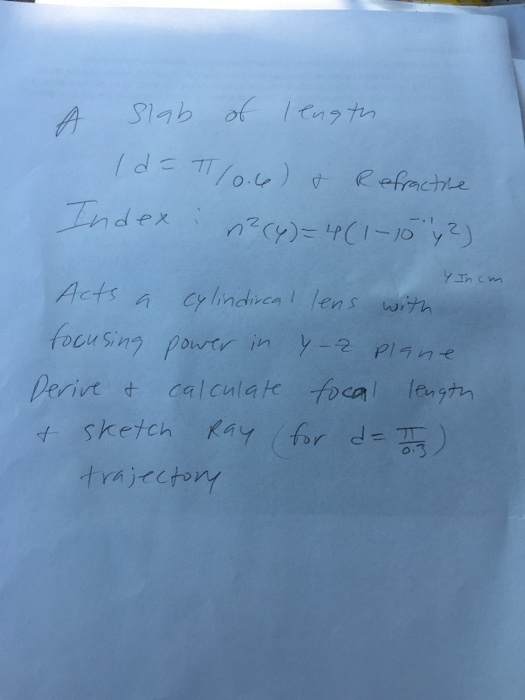 A Slab of length
(d = π/0.6) & Refractive
Index: n²(y)=4(1-10^-1 y²)
y In cm
Acts a cylindircal lens with
focusing power in y-z plane
Derive & calculate focal length
& sketch Ray (for d = π/0.3)
trajectory